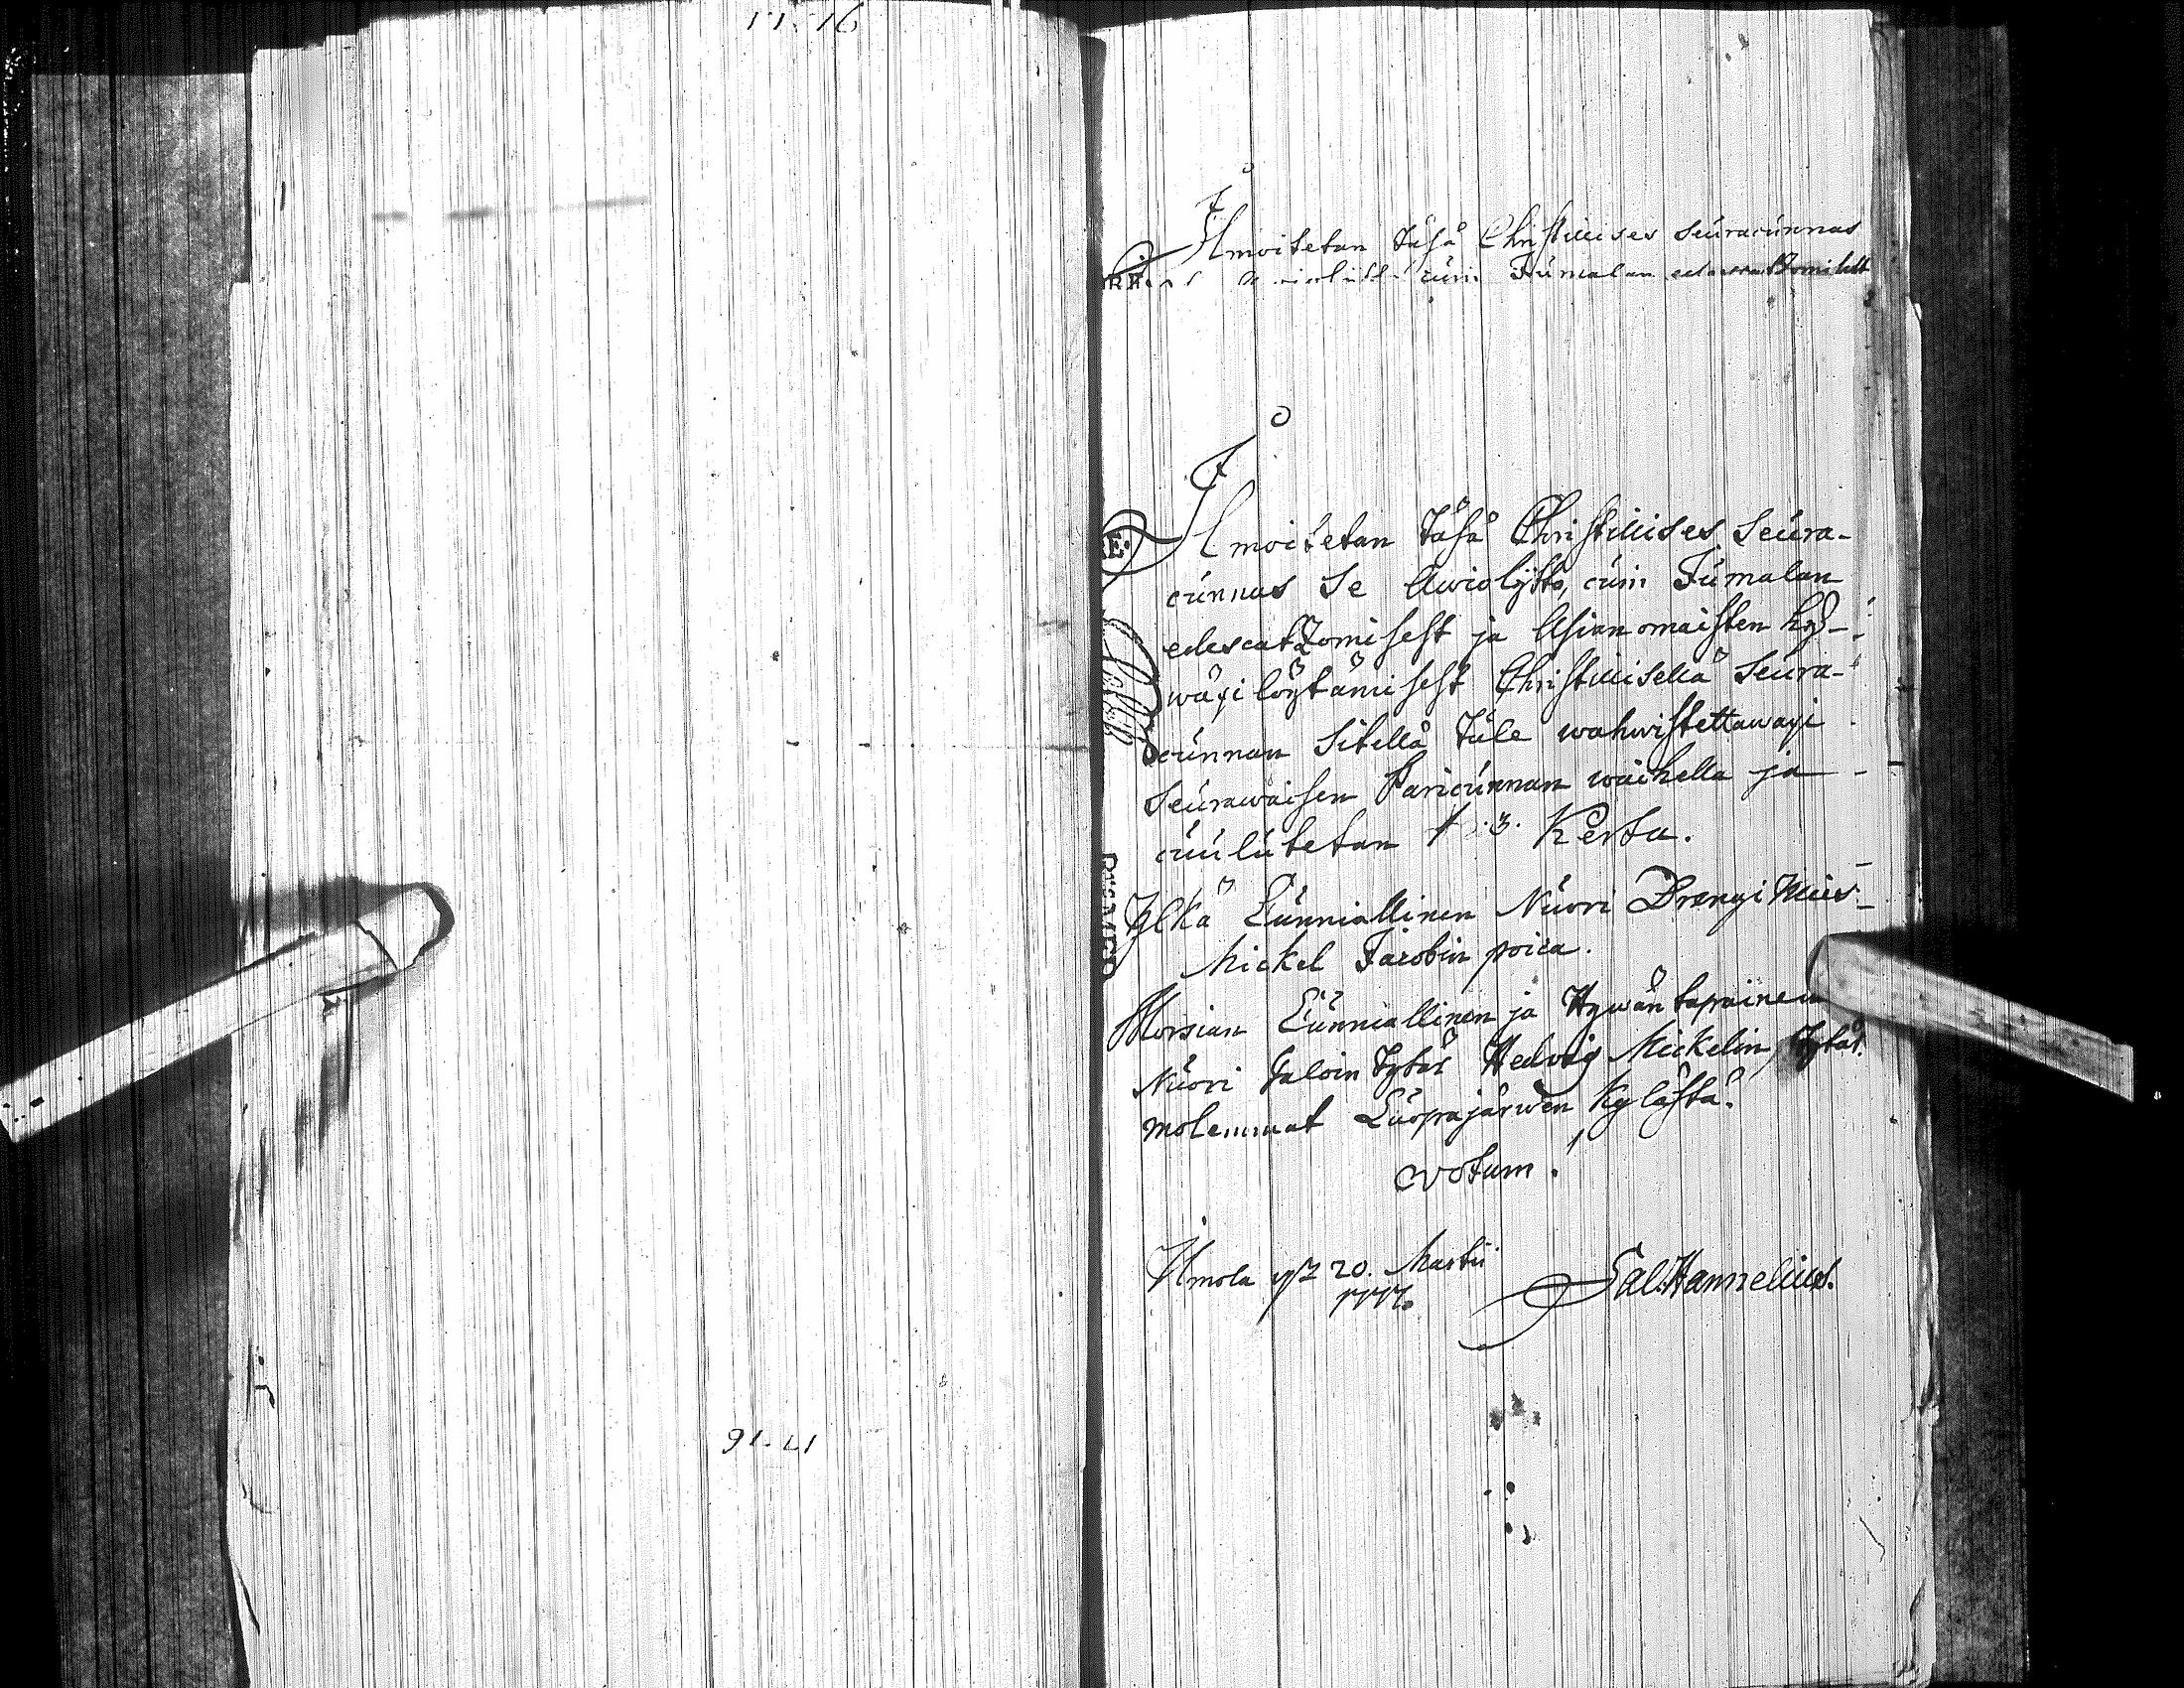 17.16
Ilmoitetan täsä Christillises seuracunnas
cuin Jumalan
Ilmoitetan täsä Christillises seura-
cunnas se Awiolijtto, cuin Jumalan
edescatzomisest ja Asianomaisten hy-
wäxi löytämisest Christillisellä seura-
cunnan sitellä tule wahwistettawaxi
seurawaisen Paricunnan waihella ja
cuulutetan 1. 3. Kerta.
Yljkä Cunniallinen Nuori Drengi Mies
Mickel Jacobin poica.
Morsian Cunniallinen ja Hywäntapainen
Nuori talointytär Hedvig Mickelin Tytär.
molemmat Luopajärwen kylästä.
votum!
Ilmola 20. Martii
1777.
Sal. Hannelius.
17-16